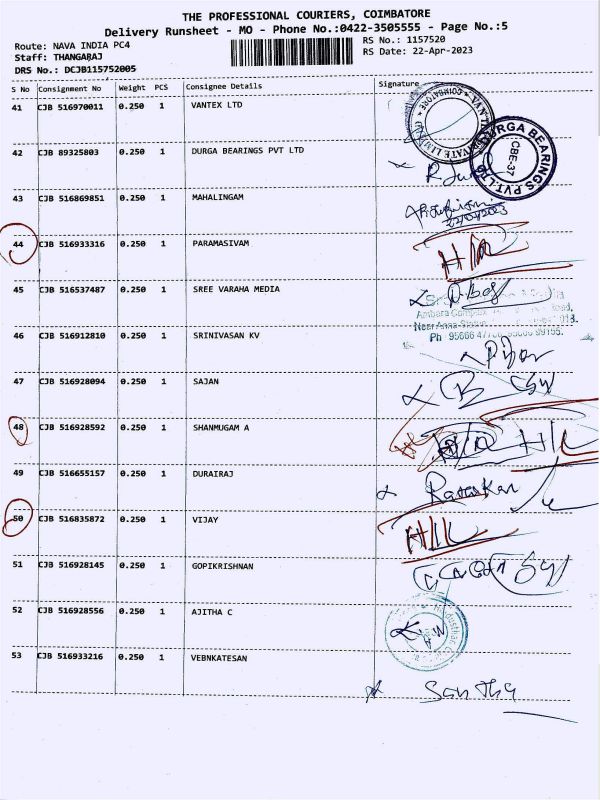 THE PROFESSIONAL COURIERS, COIMBATORE
Delivery Runsheet - MO - Phone No.:0422-3505555 - Page No.:5
Route: NAVA INDIA PC4
RS No.: 1157520
Staff: THANGARAJ
RS Date: 22-Apr-2023
DRS No.: DCJB115752005
S No Consignment No Weight PCS Consignee Details Signature
41 CJB 516970011 0.250 1 VANTEX LTD
42 CJB 89325803 0.250 1 DURGA BEARINGS PVT LTD
DURGA BEARINGS PVT. LTD
CBE-37
43 CJB 516869851 0.250 1 MAHALINGAM
22/04/2023
44 CJB 516933316 0.250 1 PARAMASIVAM
45 CJB 516537487 0.250 1 SREE VARAHA MEDIA
46 CJB 516912810 0.250 1 SRINIVASAN KV
47 CJB 516928094 0.250 1 SAJAN
48 CJB 516928592 0.250 1 SHANMUGAM A
49 CJB 516655157 0.250 1 DURAIRAJ
50 CJB 516835872 0.250 1 VIJAY
51 CJB 516928145 0.250 1 GOPIKRISHNAN
52 CJB 516928556 0.250 1 AJITHA C
53 CJB 516933216 0.250 1 VEBNKATESAN
Santha